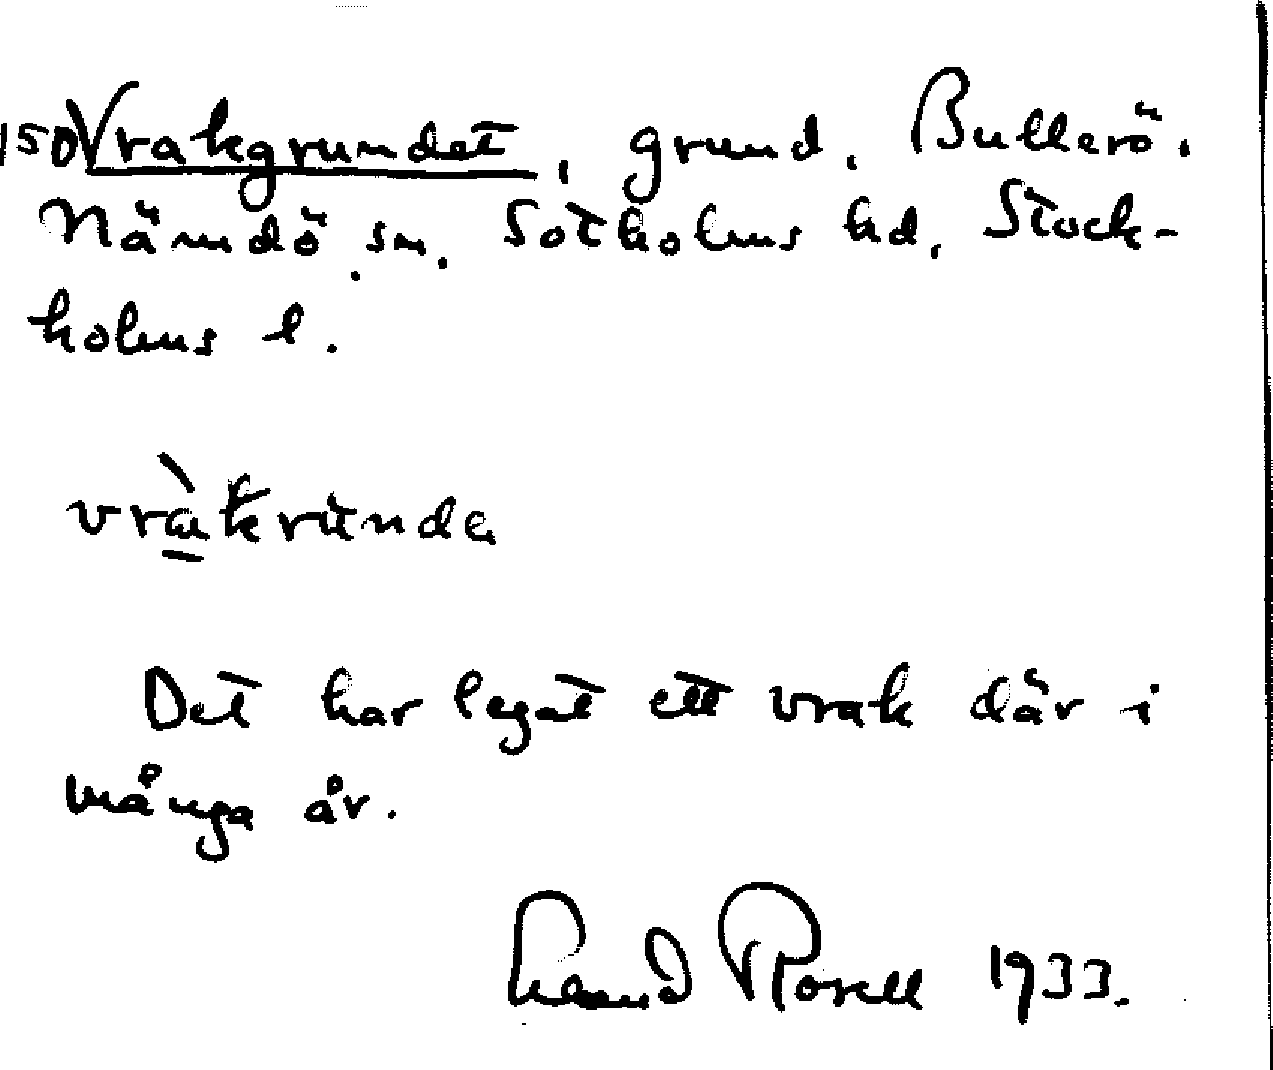 150 Vrakgrundet, grund. Bullerö.
Nämdö sn. Sotholms hd, Stock-
holms l.
vràkrunda
Det har legat ett vrak där i
många år.
1933.